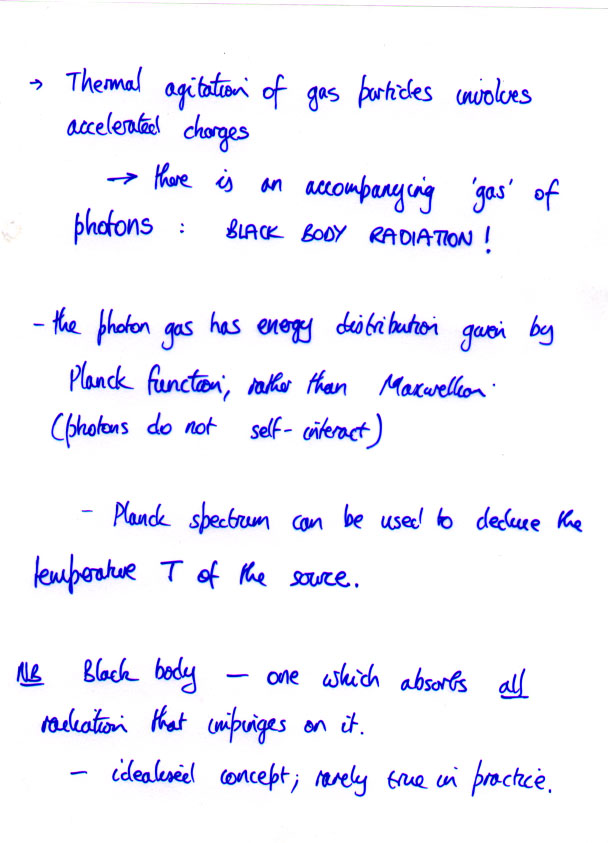 → Thermal agitation of gas particles involves
accelerated charges
→ there is an accompanying 'gas' of
photons : BLACK BODY RADIATION !
- the photon gas has energy distribution given by
Planck function, rather than Maxwellian.
(photons do not self-interact)
- Planck spectrum can be used to deduce the
temperature T of the source.
NB Black body — one which absorbs all
radiation that impinges on it.
- idealised concept; rarely true in practice.